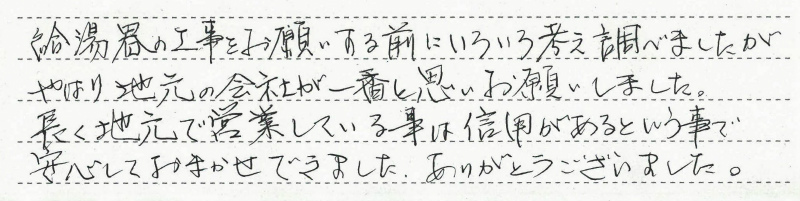 給湯器の工事をお願いする前にいろいろ考え調べましたが
やはり地元の会社が一番と思いお願いしました。
長く地元で営業している事は信用があるという事で
安心しておまかせできました。ありがとうございました。